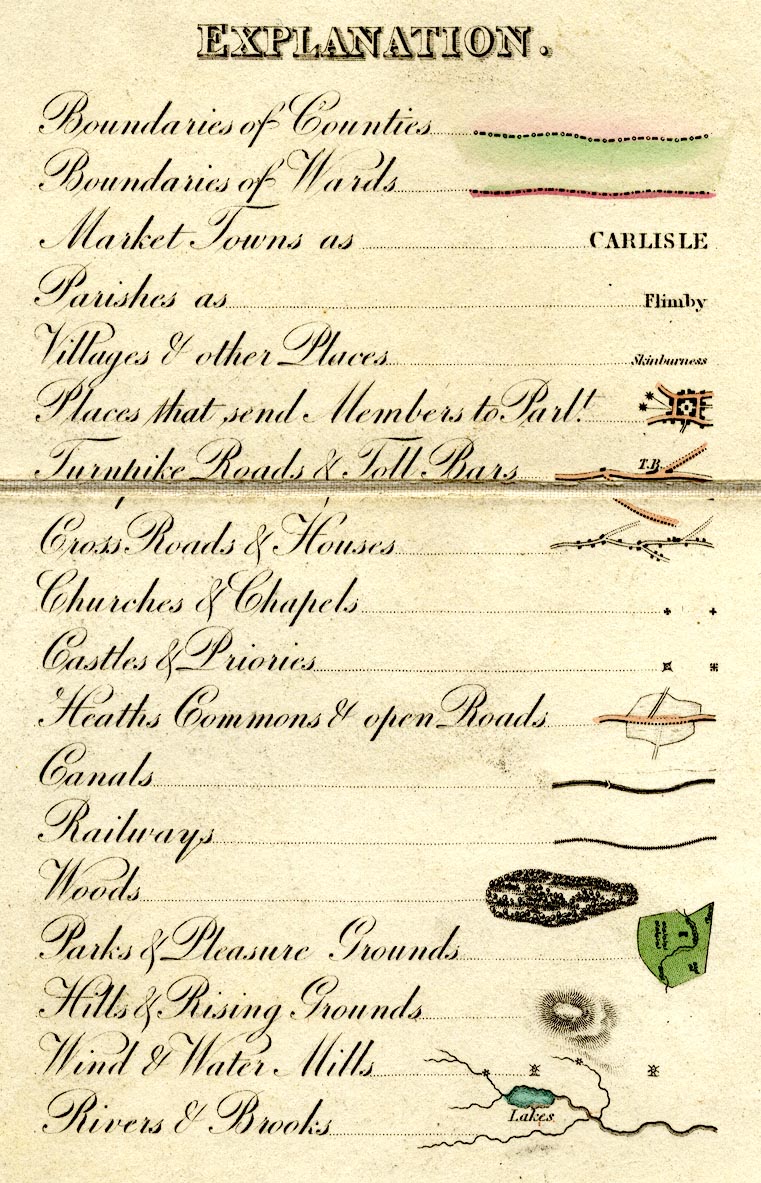 EXPLANATION.
Boundaries of Counties
Boundaries of Wards
Market Towns as CARLISLE
Parishes as Flimby
Villages & other Places Skinburness
Places that send Members to Parl.t
Turnpike Roads & Toll Bars T.B.
Cross Roads & Houses
Churches & Chapels
Castles & Priories
Heaths Commons & open Roads
Canals
Railways
Woods
Parks & Pleasure Grounds
Hills & Rising Grounds
Wind & Water Mills
Rivers & Brooks Lakes